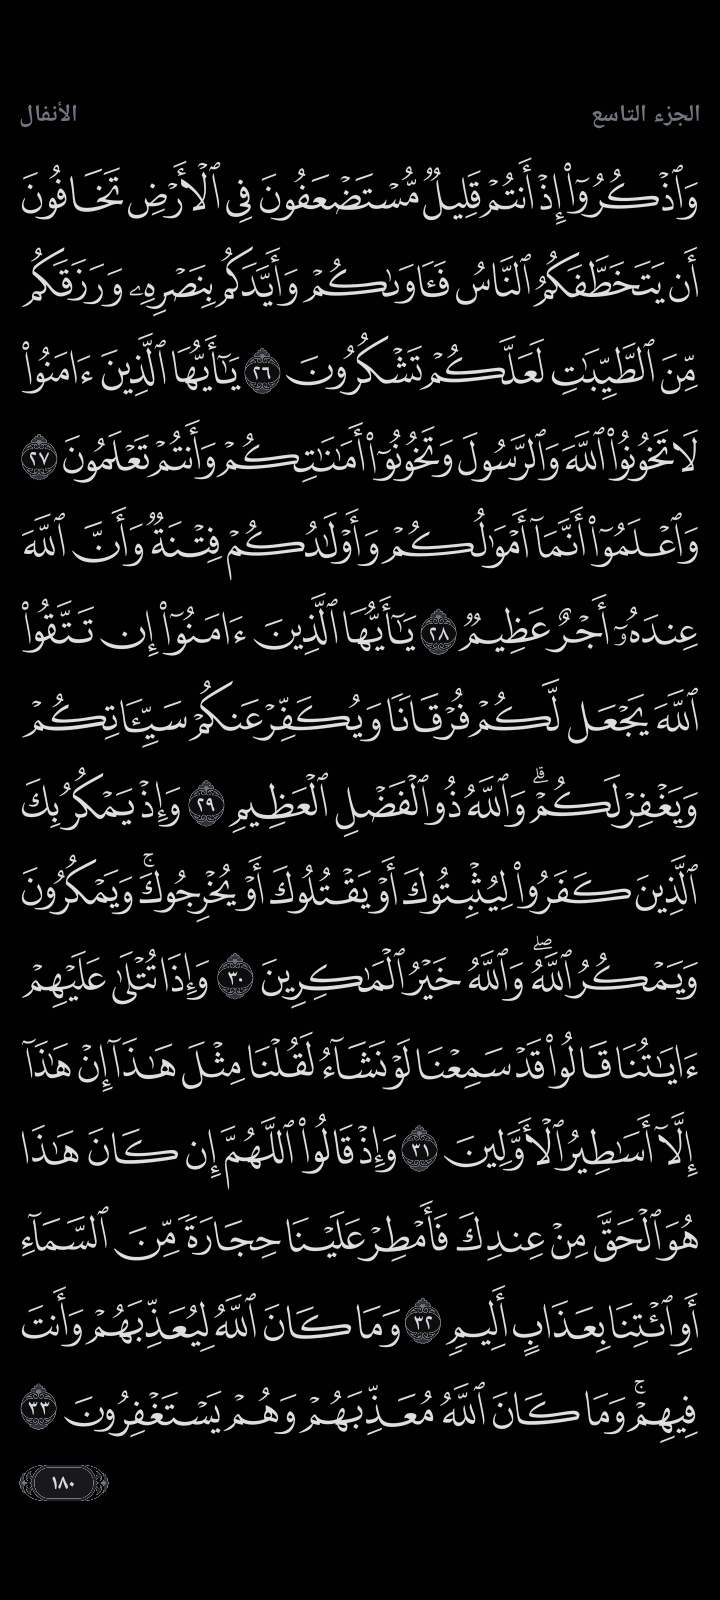 الجزء التاسع
الأنفال
وَٱذۡكُرُوٓاْ إِذۡ أَنتُمۡ قَلِيلٞ مُّسۡتَضۡعَفُونَ فِي ٱلۡأَرۡضِ تَخَافُونَ
أَن يَتَخَطَّفَكُمُ ٱلنَّاسُ فَـَٔاوَىٰكُمۡ وَأَيَّدَكُم بِنَصۡرِهِۦ وَرَزَقَكُم
مِّنَ ٱلطَّيِّبَٰتِ لَعَلَّكُمۡ تَشۡكُرُونَ ٢٦ يَٰٓأَيُّهَا ٱلَّذِينَ ءَامَنُواْ
لَا تَخُونُواْ ٱللَّهَ وَٱلرَّسُولَ وَتَخُونُوٓاْ أَمَٰنَٰتِكُمۡ وَأَنتُمۡ تَعۡلَمُونَ ٢٧
وَٱعۡلَمُوٓاْ أَنَّمَآ أَمۡوَٰلُكُمۡ وَأَوۡلَٰدُكُمۡ فِتۡنَةٞ وَأَنَّ ٱللَّهَ
عِندَهُۥٓ أَجۡرٌ عَظِيمٞ ٢٨ يَٰٓأَيُّهَا ٱلَّذِينَ ءَامَنُوٓاْ إِن تَتَّقُواْ
ٱللَّهَ يَجۡعَل لَّكُمۡ فُرۡقَانٗا وَيُكَفِّرۡ عَنكُمۡ سَيِّـَٔاتِكُمۡ
وَيَغۡفِرۡ لَكُمۡۗ وَٱللَّهُ ذُو ٱلۡفَضۡلِ ٱلۡعَظِيمِ ٢٩ وَإِذۡ يَمۡكُرُ بِكَ
ٱلَّذِينَ كَفَرُواْ لِيُثۡبِتُوكَ أَوۡ يَقۡتُلُوكَ أَوۡ يُخۡرِجُوكَۚ وَيَمۡكُرُونَ
وَيَمۡكُرُ ٱللَّهُۖ وَٱللَّهُ خَيۡرُ ٱلۡمَٰكِرِينَ ٣٠ وَإِذَا تُتۡلَىٰ عَلَيۡهِمۡ
ءَايَٰتُنَا قَالُواْ قَدۡ سَمِعۡنَا لَوۡ نَشَآءُ لَقُلۡنَا مِثۡلَ هَٰذَآ إِنۡ هَٰذَآ
إِلَّآ أَسَٰطِيرُ ٱلۡأَوَّلِينَ ٣١ وَإِذۡ قَالُواْ ٱللَّهُمَّ إِن كَانَ هَٰذَا
هُوَ ٱلۡحَقَّ مِنۡ عِندِكَ فَأَمۡطِرۡ عَلَيۡنَا حِجَارَةٗ مِّنَ ٱلسَّمَآءِ
أَوِ ٱئۡتِنَا بِعَذَابٍ أَلِيمٖ ٣٢ وَمَا كَانَ ٱللَّهُ لِيُعَذِّبَهُمۡ وَأَنتَ
فِيهِمۡۚ وَمَا كَانَ ٱللَّهُ مُعَذِّبَهُمۡ وَهُمۡ يَسۡتَغۡفِرُونَ ٣٣
١٨٠